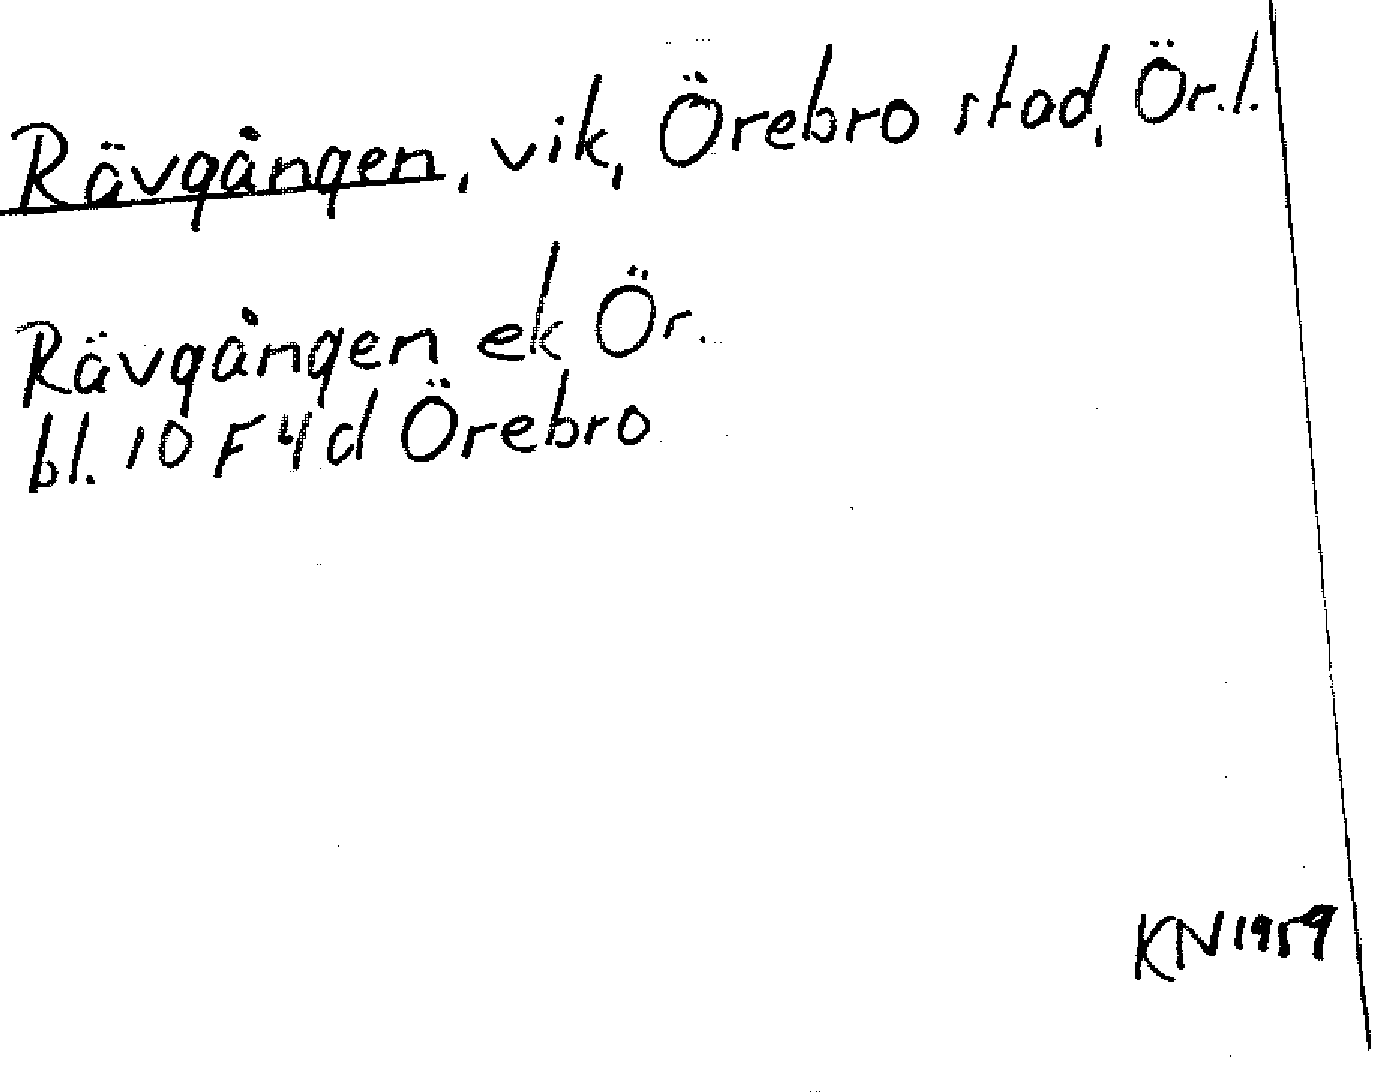 Rävgången, vik, Örebro stad, Ör.l.
Rävgången ek Ör.
bl. 10 F 4d Örebro
KN 1959